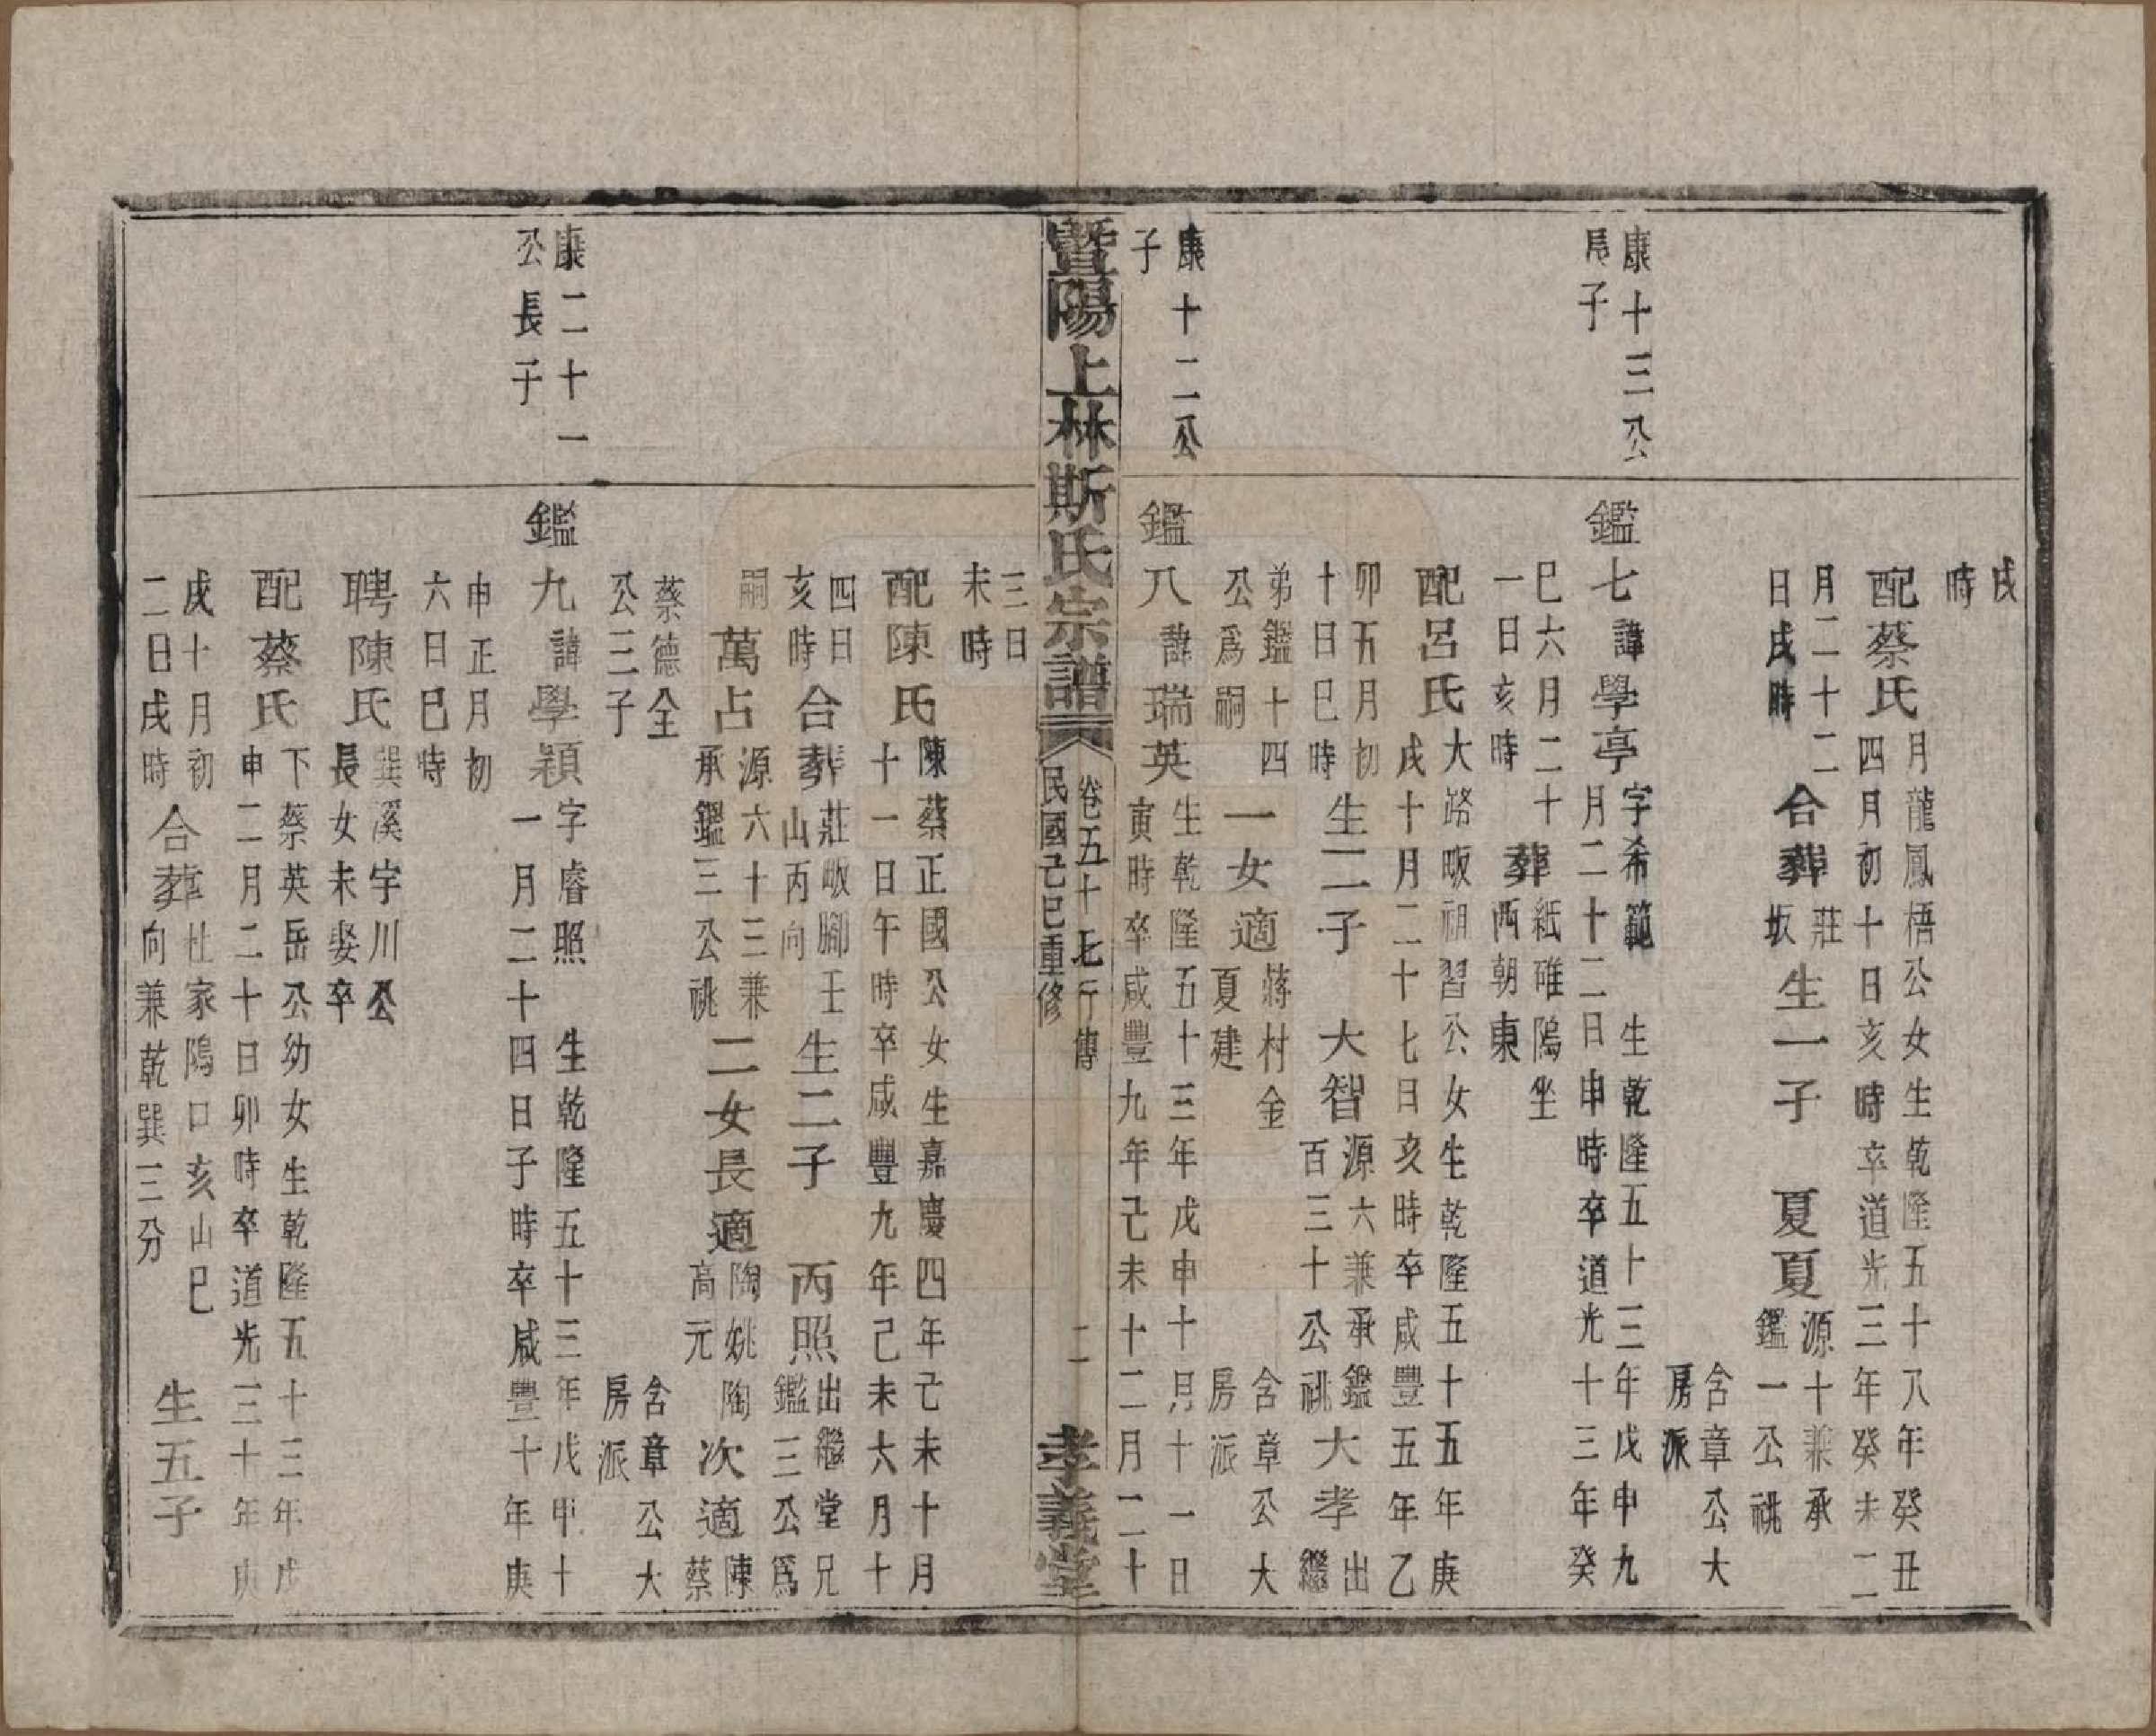 戌
時
配蔡氏
月龍鳳梧公女生乾隆五十八年癸丑
四月初十日亥時卒道光三年癸未二
月二十二
日戌時
合葬
莊
坂
生一子
夏夏
源十兼承
鑑一公祧
含章公大
房派
康十三公
鳧子
鑑七諱學亭
字希範 生乾隆五十三年戊申九
月二十二日申時卒道光十三年癸
巳六月二十
一日亥時
葬
紙碓隖坐
西朝東
配呂氏
大路畈祖習公女生乾隆五十五年庚
戌十月二十七日亥時卒咸豐五年乙
卯五月初
十日巳時
生二子
大智
源六兼承鑑
百三十公祧
大孝
出
繼
弟鑑十四
公爲嗣
一女適
蔣村金
夏建
含章公大
房派
康十二公
子
鑑八諱瑞英
生乾隆五十三年戊申十月十一日
寅時卒咸豐九年己未十二月二十
暨陽上林斯氏宗譜
卷五十七行傳
民國己巳重修
二
孝義堂
三日
未時
配陳氏
陳蔡正國公女生嘉慶四年己未十月
十一日午時卒咸豐九年己未六月十
四日
亥時
合葬
莊畈腳壬
山丙向
生二子
丙照
出繼堂兄
鑑三公爲
嗣
萬占
源六十三兼
承鑑三公祧
二女長適
陶姚陶
高元
次適
陳
蔡
蔡德全
公三子
含章公大
房派
康二十一
公長子
鑑九諱學穎
字睿照 生乾隆五十三年戊申十
一月二十四日子時卒咸豐十年庚
申正月初
六日巳時
聘陳氏
巽溪宇川公
長女未娶卒
配蔡氏
下蔡英岳公幼女生乾隆五十三年戊
申二月二十日卯時卒道光三十年庚
戌十月初
二日戌時
合葬
杜家隖口亥山巳
向兼乾巽三分
生五子